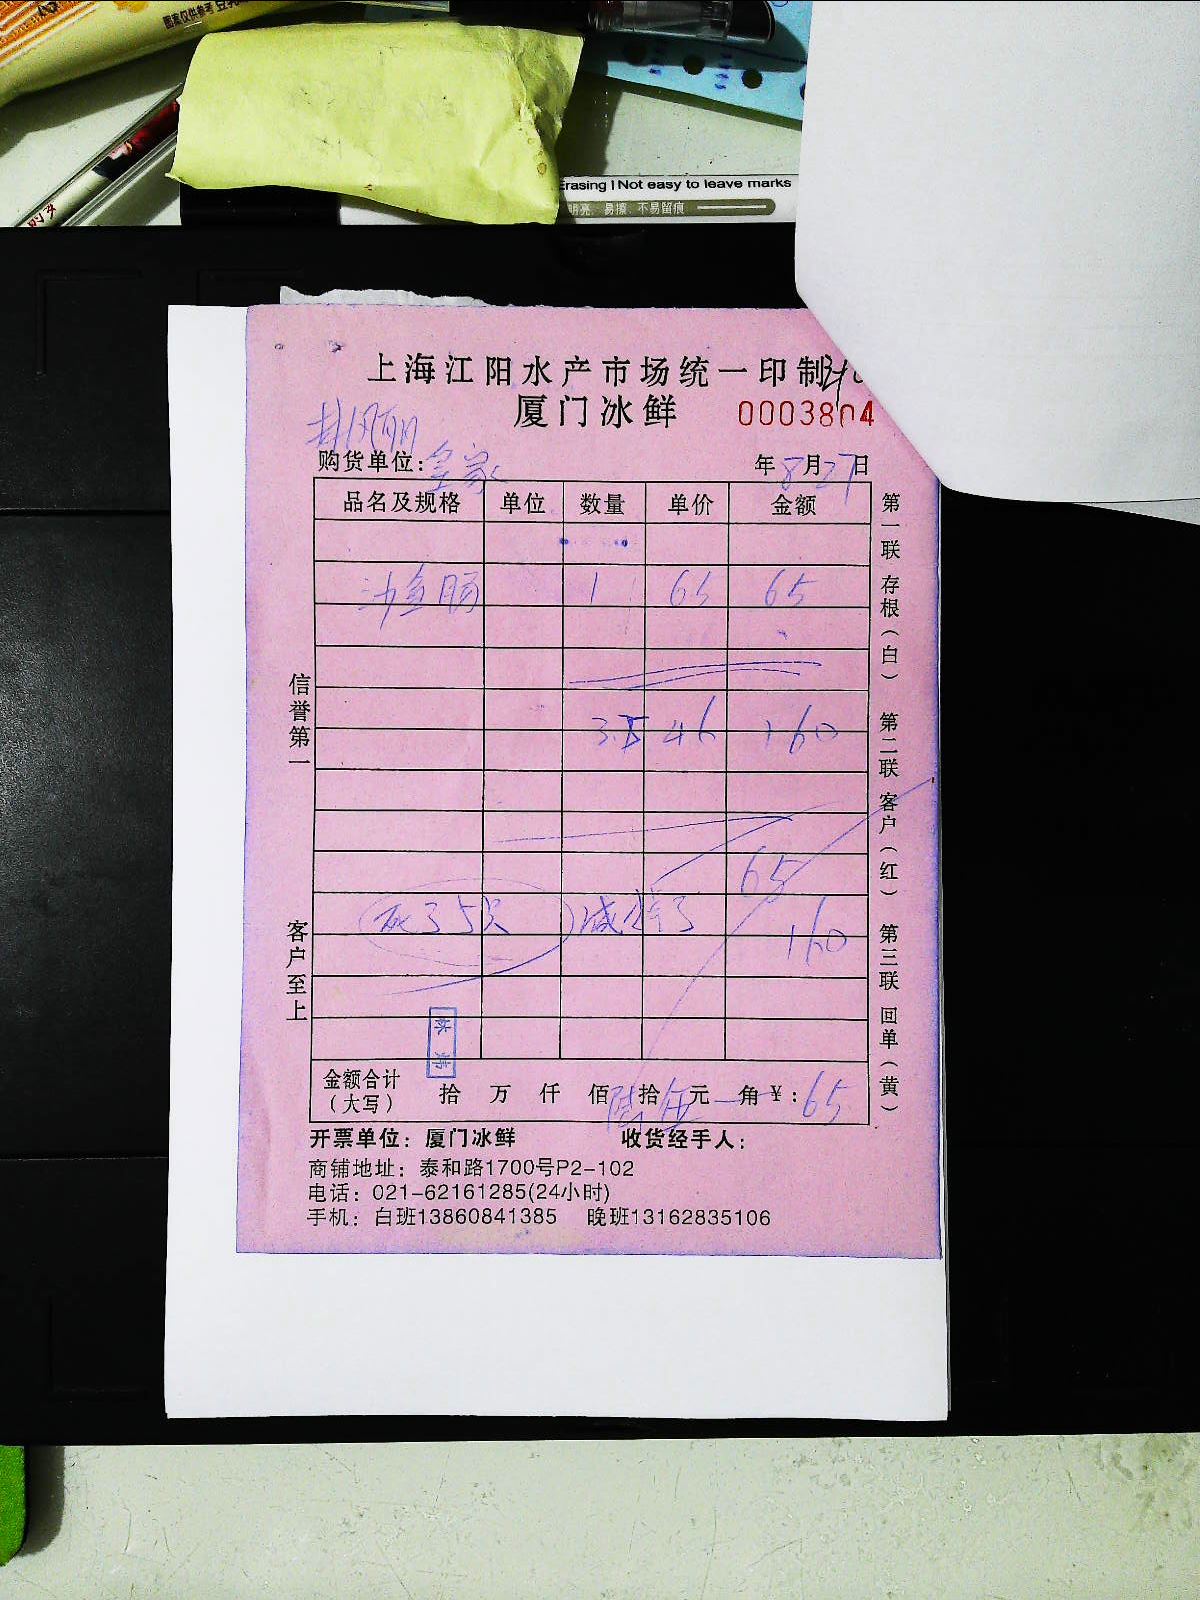 国家仅供参考
Erasing | Not easy to leave marks
明亮、易擦、不易留痕
上海江阳水产市场统一印制
厦门冰鲜 0003804
购货单位：皇家 年8月27日
品名及规格 单位 数量 单价 金额
沙鱼肠 1 65 65
3.5 46 160
65
死了5只 减
160
金额合计（大写） 拾 万 仟 佰 陆拾伍元 角￥：65
开票单位：厦门冰鲜 收货经手人：
商铺地址：泰和路1700号P2-102
电话：021-62161285(24小时)
手机：白班13860841385 晚班13162835106
信誉第一 客户至上
第一联 存根（白） 第二联 客户（红） 第三联 回单（黄）